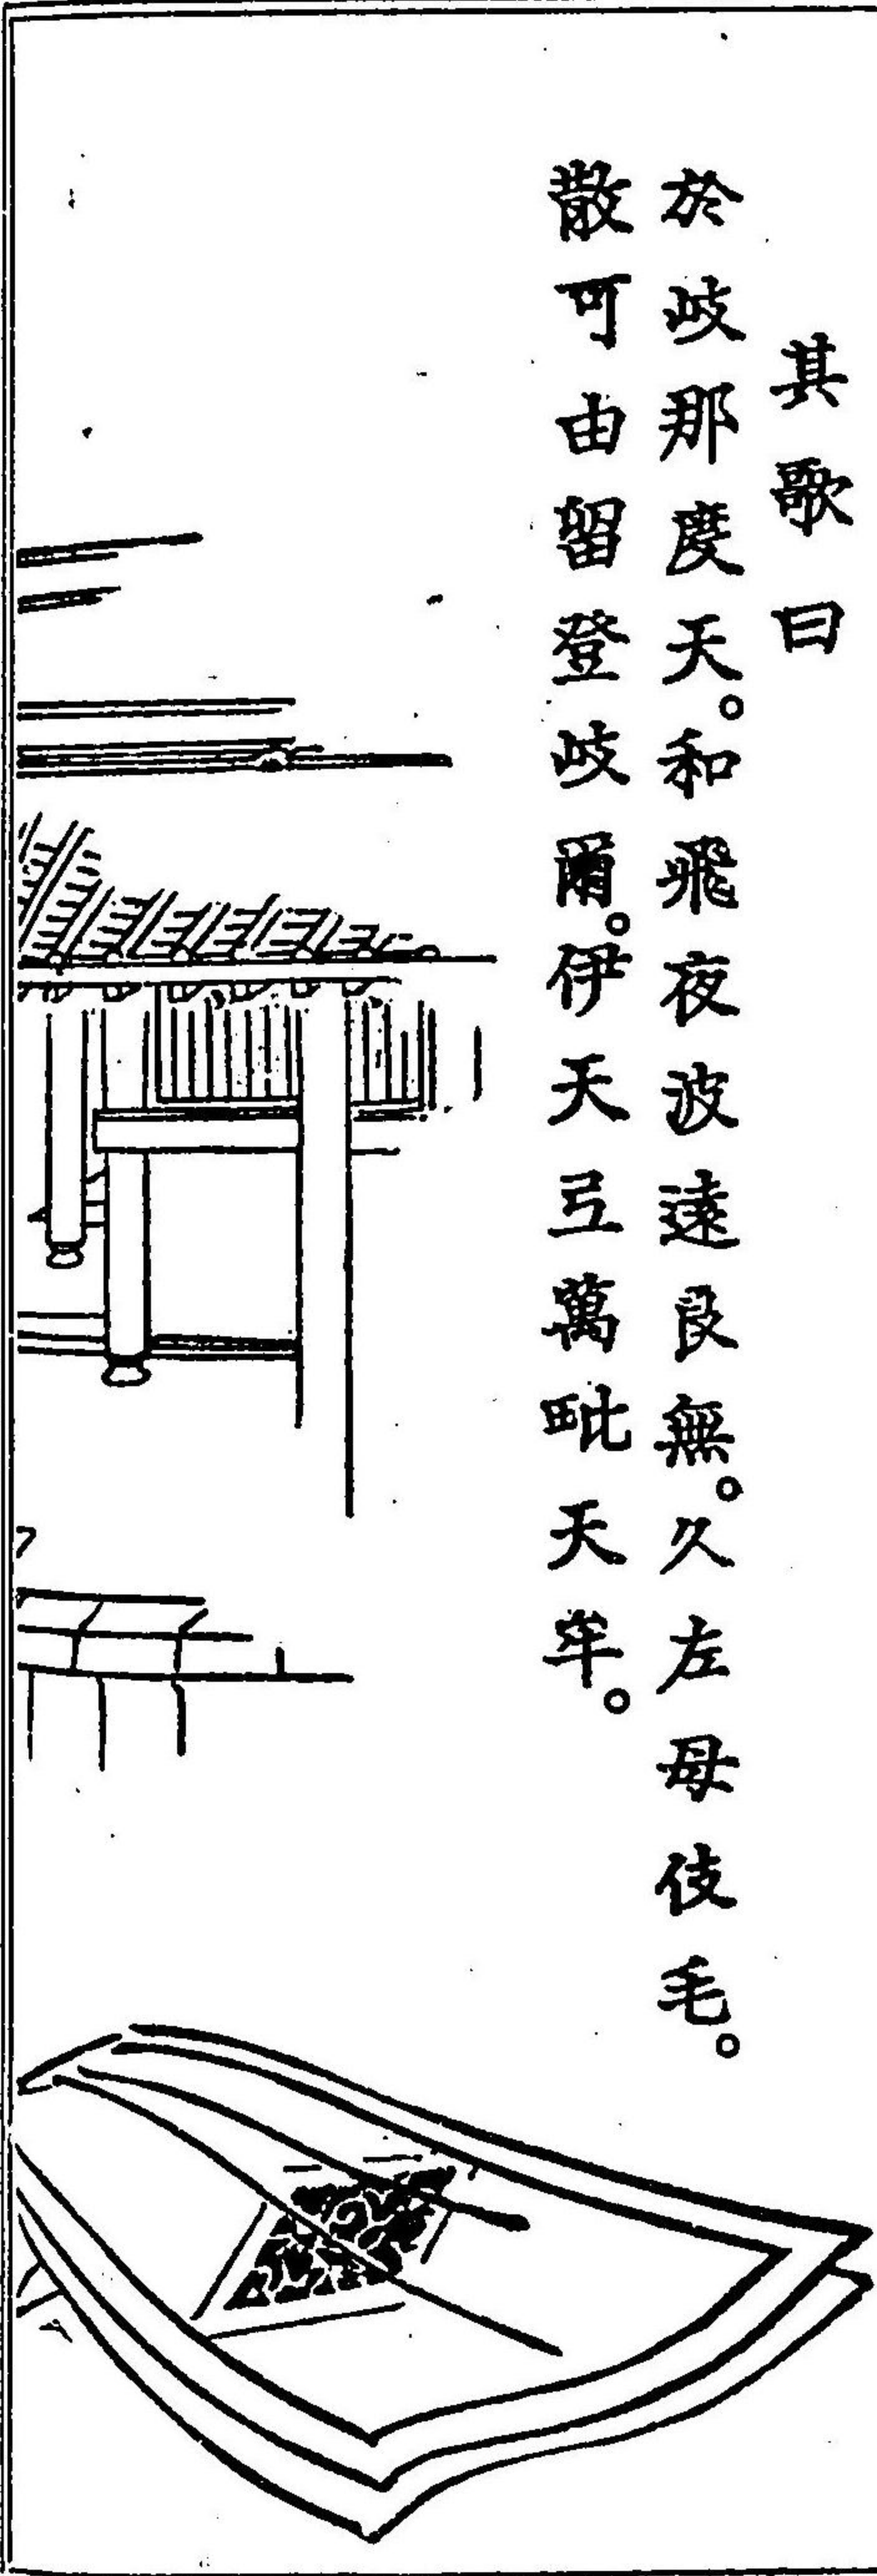 其歌曰
於岐那度天。和飛夜波遠良無。久左母伎毛。
散可由留登岐爾。伊天弖萬毗天牟。